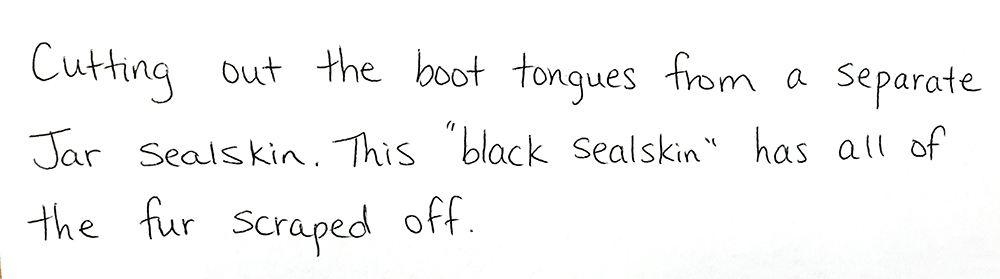 Cutting out the boot tongues from a separate
Jar sealskin. This "black sealskin" has all of
the fur scraped off.